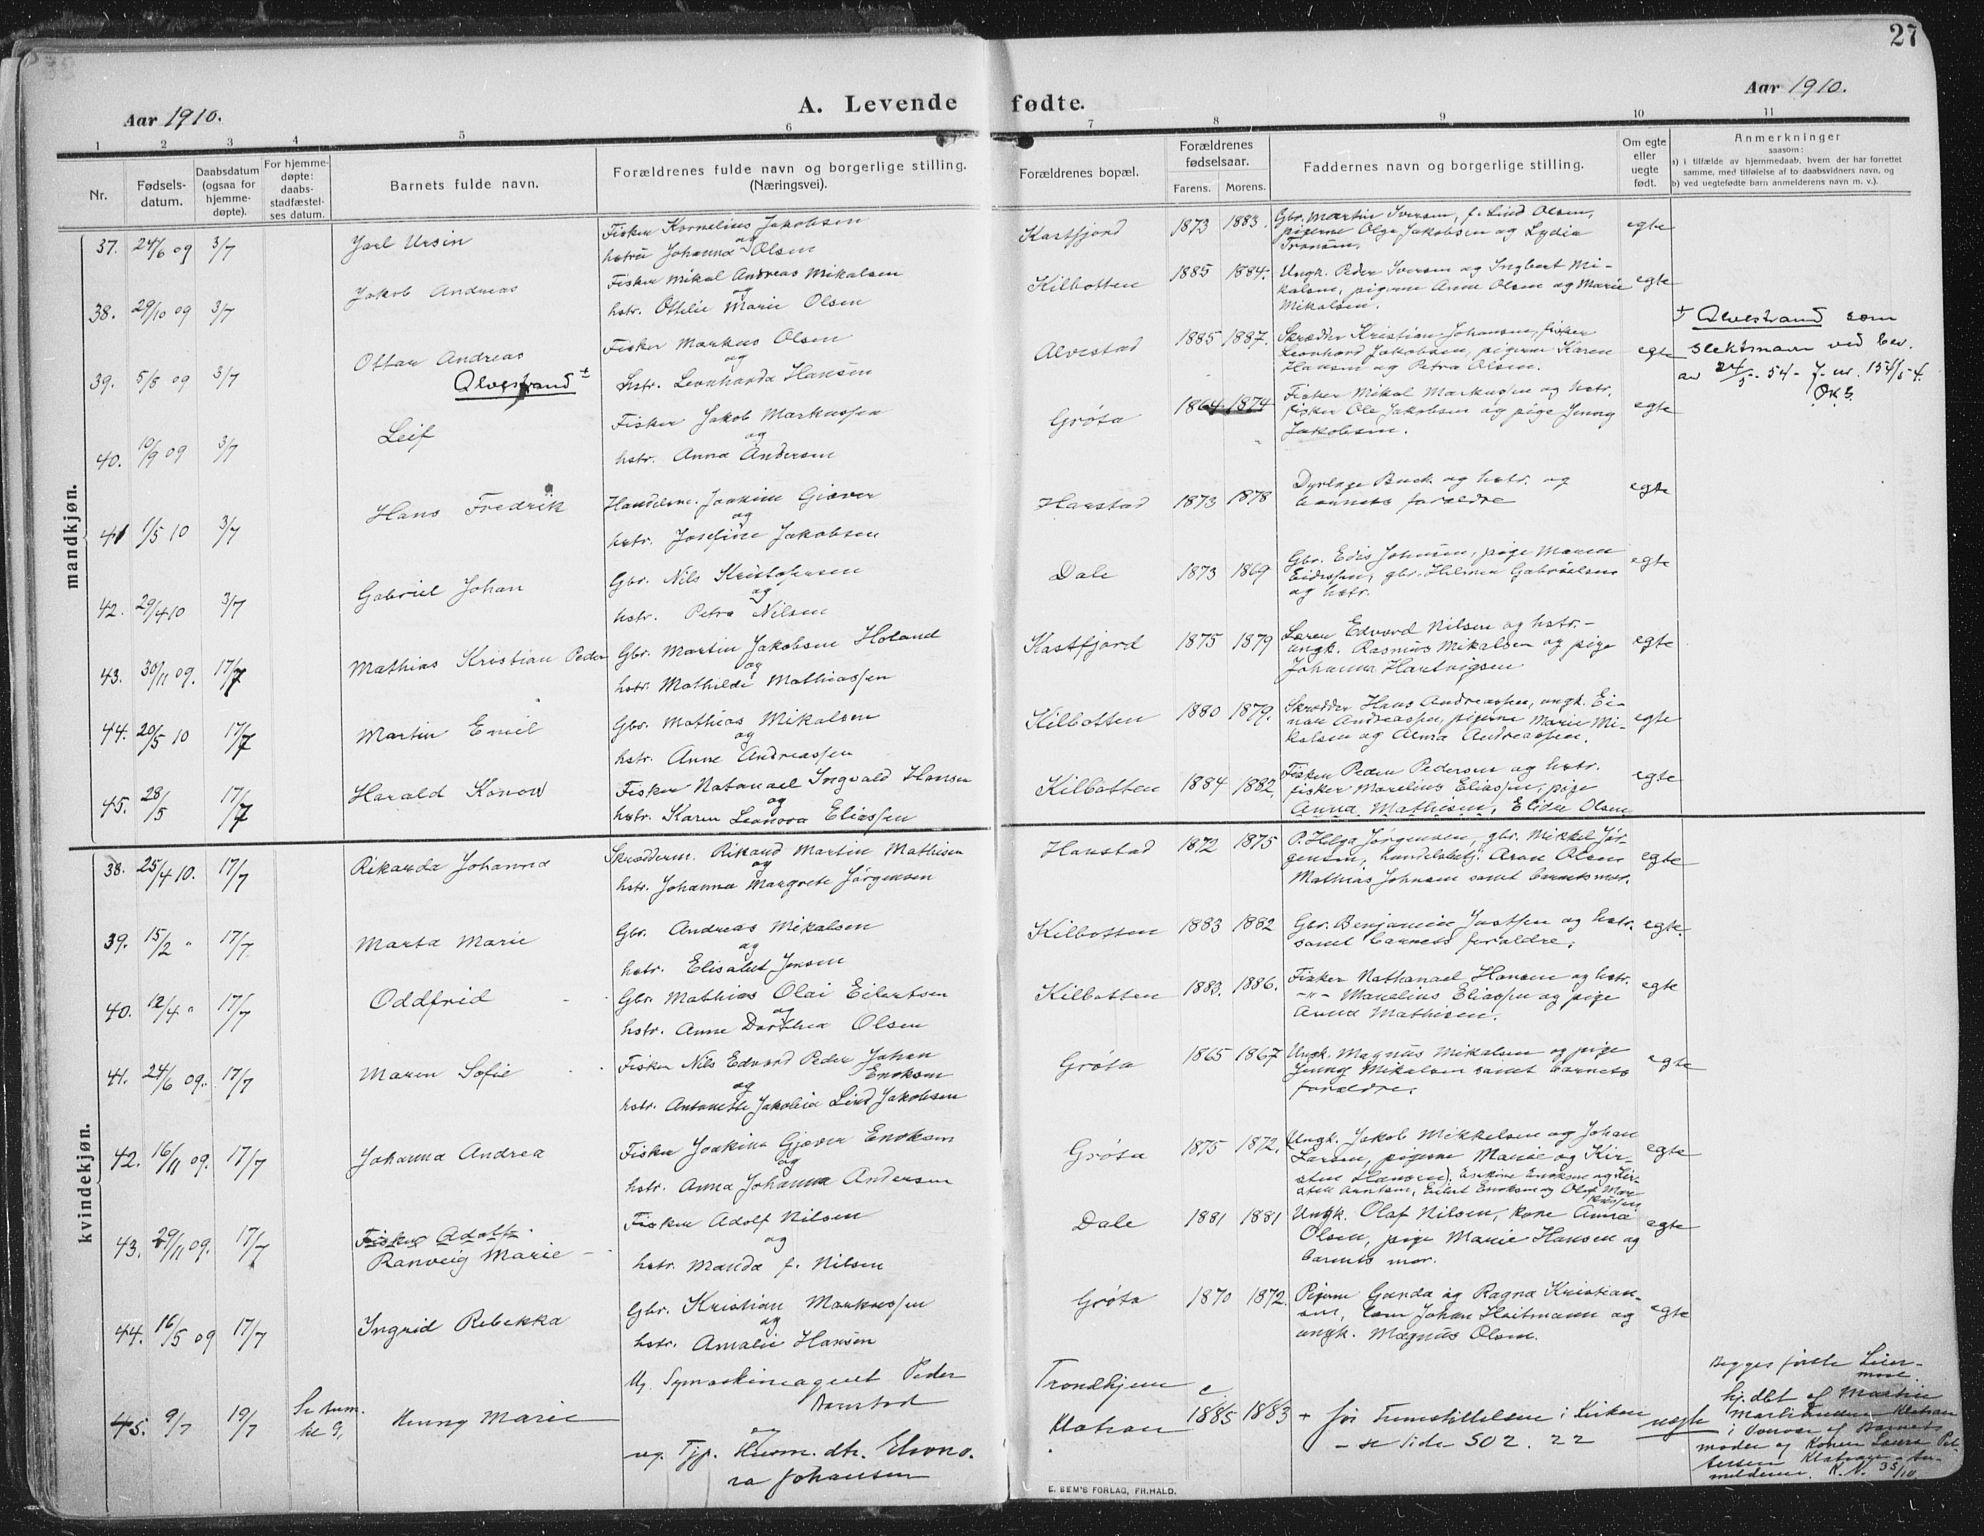 27
Aar 1910.
A. Levende fødte.
Aar 1910.
1 2 3 4 5 6 7 8 9 10 11
Nr.
Fødsels-
datum.
Daabsdatum
(ogsaa for
hjemme-
døpte).
For hjemme-
døpte:
daabs-
stadfæstel-
ses datum.
Barnets fulde navn.
Forældrenes fulde navn og borgerlige stilling.
(Næringsvei).
Forældrenes bopæl.
Forældrenes
fødselsaar.
Farens. Morens.
Faddernes navn og borgerlige stilling.
Om egte
eller
uegte
født.
Anmerkninger
saasom:
a) i tilfælde av hjemmedaab, hvem der har forrettet
samme, med tilføielse af to daabsvidners navn, og
b) ved uegtefødte barn anmelderens navn m. v.).
mandkjøn.
37. 24/6 09 3/7 Jarl Ursin
Fisker Kornelius Jakobsen
og
hstru Johanna Olsen
Kastfjord 1873 1883.
Gbr. Martin Iversen, f. Lind Olsen,
pigerne Olga Jakobsen og Lydia
egte
38. 29/10 09 3/7 Jakob Andreas
Fisker Mikal Andreas Mikalsen
og
hstr. Ottilie Marie Olsen
Kilbotten 1885 1884.
Ungk. Peder Iversen og Ingbert Mi-
kalsen, pigerne Anne Olsen og Marie
Mikalsen.
egte
39. 5/8 09 3/7 Ottar Andreas
Alvestrand +
Fisker Markus Olsen
og
hstr. Leonharda Hansen
Alvestad 1885 1887.
Skrædder Kristian Johansen, fisker
Leonhard Jakobsen, pigerne Karen
Hansen og Petra Olsen.
egte
+ Alvestrand som
slektsnavn ved bev.
av 24/5-54- J.nr. 154/54.
40. 10/9 09 3/7 Leif
Fisker Jakob Markussen
og
hstr. Anna Andersen
Grøta 1864 1874
Fisker Mikal Markussen og hstr.
fisker Ole Jakobsen og pige Jenny
Jakobsen.
egte
41 1/5 10 3/7 Hans Fredrik
Handelsm. Joakim Giæver
og
hstr. Josefine Jakobsen
Harstad 1873 1878
Dyrlæge Buch og hstr. og
barnets forældre
egte
42. 29/4 10 3/7 Gabriel Johan
Gbr. Nils Kristofersen
og
hstr. Petra Nilsen
Dale 1873 1869
Gbr. Edis Johnsen, pige Maren
Eidissen, gbr. Hilmar Gabrielsen
og hstr.
egte
43. 30/11 09. 17/7 Mathias Kristian Peder
Gbr. Martin Jakobsen Holand
og
hstr. Mathilde Mathiassen
Kastfjord 1875 1879
Edvard Nilsen og hstr. -
ungk. Rasmus Mikalsen og pige
Johanna Hartvigsen
egte
44. 20/5 10 17/7 Martin Emil
Gbr. Mathias Mikalsen
og
hstr. Anne Andreassen
Kilbotten 1880 1879.
Skrædder Hans Andreassen, ungk. Ei-
nar Andreassen, pigerne Marie Mi-
kalsen og Alma Andreassen.
egte
45. 28/5 17/7 Harald Konow
Fisker Natanael Ingvald Hansen
og
hstr. Karen Leonora Eliassen
Kilbotten 1884 1882.
Fisker Peder Pedersen og hstr.
fisker Marelius Eliassen, pige
Anna Mathisen, Elida Olsen
egte
kvindekjøn.
38. 25/4 10. 17/7 Rikarda Johanna
Skrædderm. Rikard Martin Mathisen
og
hstr. Johanna Margrete Jørgensen
Harstad 1872 1875
P. Helga Jørgensen, gbr. Mikkel Jør-
gensen, handelsbetj. Aron Olsen
Mathias Johnsen samt barnets mor.
egte
39. 15/2 " 17/7. Marta Marie
Gbr. Andreas Mikalsen
og
hstr. Elisabet Jensen
Kilbotten 1883 1882
Gbr. Benjamin Justsen og hstr.
samt barnets forældre.
egte.
40. 12/4 " 17/7 Oddfrid
Gbr. Mathias Olai Eilertsen
og
hstr. Anne Dorthea Olsen
Kilbotten 1883. 1886.
Fisker Nathanael Hansen og hstr.
-"- Marelius Eliassen og pige
Anna Mathisen.
egte
41. 24/6 09. 17/7 Maren Sofie
Fisker Nils Edvard Peder Johan
Enoksen
og
hstr. Antonette Jakobia Lind Jakobsen
Grøta 1865 1867
Ungk. Magnus Mikalsen og pige
Jenny Mikalsen samt barnets
forældre.
egte
42. 16/11 09. 17/7 Johanna Andrea
Fisker Joakim Gjæver Enoksen
og
hstr. Anna Johanna Andersen
Grøta 1875 1872.
Ungk. Jakob Mikkelsen og Johan
Larsen, pigerne Marie og Kir-
sten Hansen), Enoksen og Kir-
sten Arntsen, Eilert Enoksen og Olaf Mar-
kussen
egte
43. 29/11 09. 17/7 Fisker Adolf
Ranveig Marie
Fisker Adolf Nilsen
og
hstr. Manda f. Nilsen
Dale 1881 1881
Ungk. Olaf Nilsen, kone Anna
Olsen, pige Marie Hansen og
barnets mor.
egte
44. 16/5 09 17/7 Ingrid Rebekka
Gbr. Kristian Markussen
og
hstr. Amalie Hansen
Grøta 1870 1872.
Pigerne Gunda og Ragna Kristian-
sen, Johan Heitmann og
ungk. Magnus Olsen.
egte
45. 9/7 19/7 Henny Marie
Ug. Symaskineagent Peder
og
ug. Tjp. dtr. Elvono-
ra Johansen
Trondhjem
Klatran
c. 1885 1883
+ før Fremstillelsen i Kirken
- se side 502. 22
uegte
Begges første Leier-
maal.
hj.dbt af Martin
Klatran
i Overvær af Barnets
moder og Konen Laura Pet-
tersen Klatran - An-
melderne. K. N. 35/10
E. SEM'S FORLAG, FR.HALD.